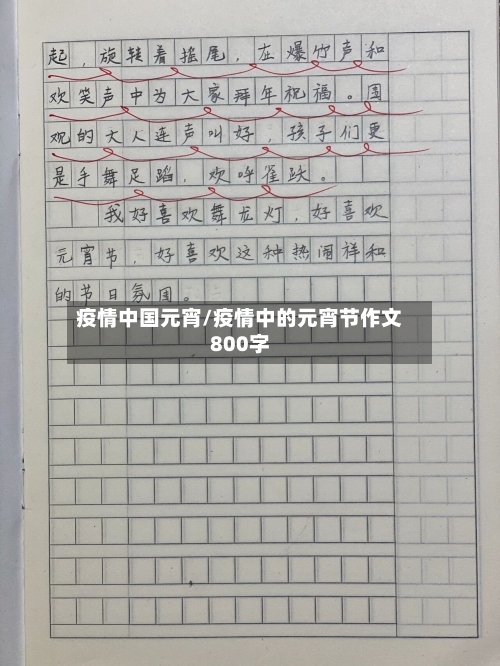 起，旋转着摇尾，在爆竹声和
欢笑声中为大家拜年祝福。围
观的大人连声叫好，孩子们更
是手舞足蹈，欢呼雀跃。
我好喜欢舞龙灯，好喜欢
元宵节，好喜欢这种热闹祥和
的节日氛围。
疫情中国元宵/疫情中的元宵节作文
800字